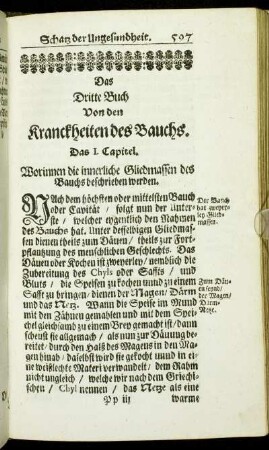 Schatz der Ungesundheit. 507
Das
Dritte Buch
Von den
Kranckheiten des Bauchs.
Das I. Capitel.
Worinnen die innerliche Gliedmassen des
Bauchs beschrieben werden.
NAch dem höchsten oder mittelsten Bauch
oder Cavität / folgt nun der Unter-
ste / welcher eygentlich den Nahmen
des Bauchs hat. Unter desselbigen Gliedmas-
sen dienen theils zum Däuen / theils zur Fort-
pflantzung des menschlichen Geschlechts. Das
Däuen oder Kochen ist zweyerley / nemblich die
Zubereitung des Chyls oder Saffts / und
Bluts / die Speisen zu kochen unnd zu einem
Safft zu bringen / dienen der Magen / Därm
und das Netz. Wann die Speise im Mund
mit den Zähnen gemahlen und mit dem Spei-
chel gleichsamb zu einem Brey gemacht ist / dann
scheufft sie allgemach / als nun zur Däuung be-
reitet / durch den Halß des Magens in den Ma-
gen hinab / daselbst wird sie gekocht unnd in ei-
ne weißlechte Materi verwandelt / dem Rahm
nicht ungleich / welche wir nach dem Griechi-
schen / Chyl nennen / das Netze als eine
Pp iij warme
Der Bauch
hat zweyer-
ley Glied-
massen.
Zum Däu-
en seynd /
der Magen /
Därm /
Netze.